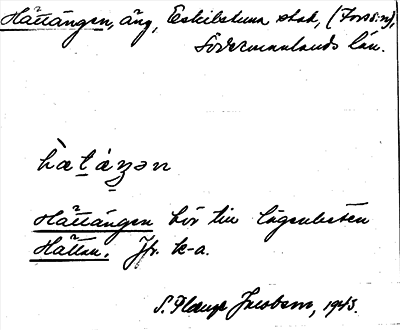 Hättängen, äng, Eskilstuna stad, (Fors sn),
Södermanlands län.
hætæŋən
Hättängen hör till lägenheten
Hättan. Jfr. k-a.
S. Jacobsen, 1943.